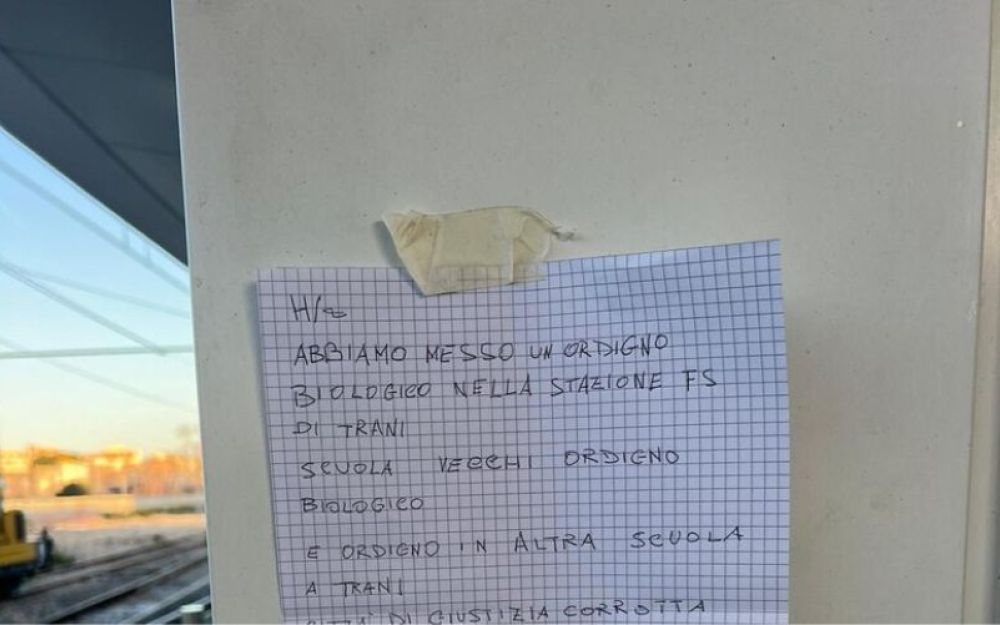 ABBIAMO MESSO UN ORDIGNO
BIOLOGICO NELLA STAZIONE FS
DI TRANI
SCUOLA VECCHI ORDIGNO
BIOLOGICO
E ORDIGNO IN ALTRA SCUOLA
A TRANI
DI GIUSTIZIA CORROTTA